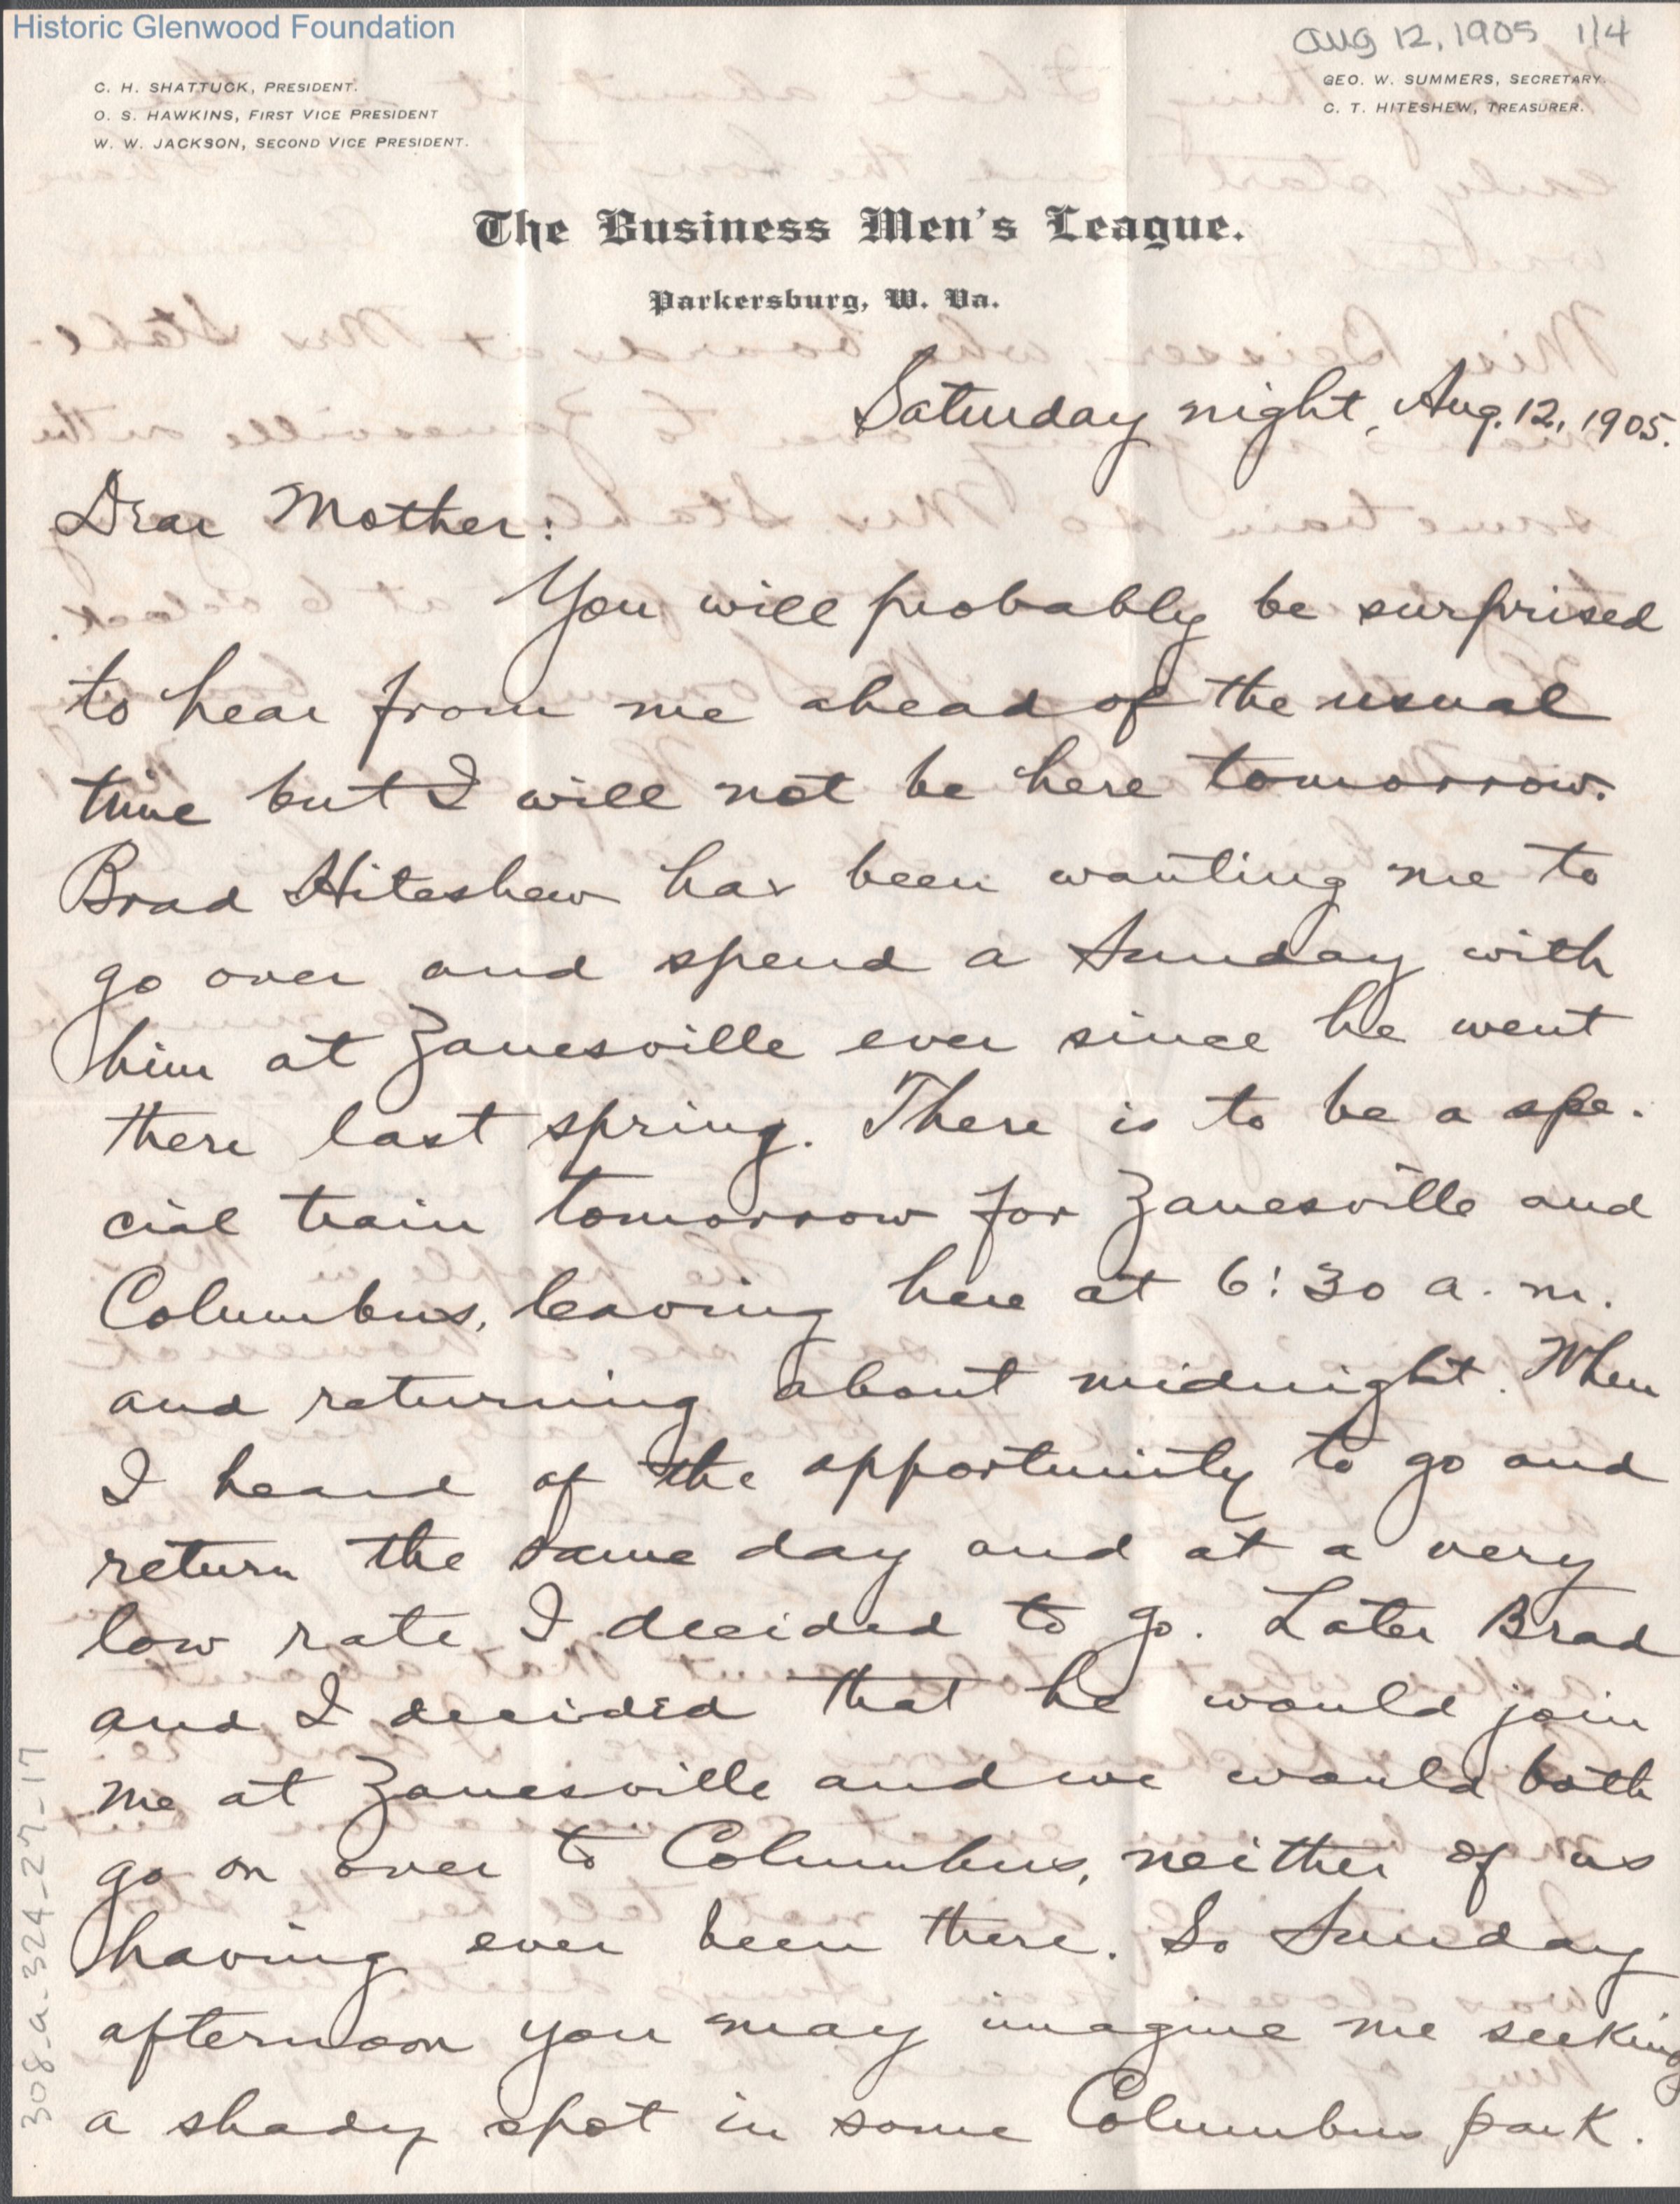 Historic Glenwood Foundation
Aug 12, 1905 1/4
C. H. SHATTUCK, PRESIDENT.
O. S. HAWKINS, FIRST VICE PRESIDENT
W. W. JACKSON, SECOND VICE PRESIDENT.
GEO. W. SUMMERS, SECRETARY.
C. T. HITESHEW, TREASURER.
The Business Men's League.
Parkersburg, W. Va.
Saturday night, Aug. 12, 1905.
Dear Mother:
You will probably be surprised
to hear from me ahead of the usual
time but I will not be here tomorrow.
Brad Hiteshew has been wanting me to
go over and spend a Sunday with
him at Zanesville ever since he went
there last spring. There is to be a spe-
cial train tomorrow for Zanesville and
Columbus, leaving here at 6:30 a. m.
and returning about midnight. When
I heard of the opportunity to go and
return the same day and at a very
low rate I decided to go. Later Brad
and I decided that he would join
me at Zanesville and we would both
go on over to Columbus, neither of us
having ever been there. So Sunday
afternoon you may imagine me seeking
a shady spot in some Columbus park.
308-a-324-27-17